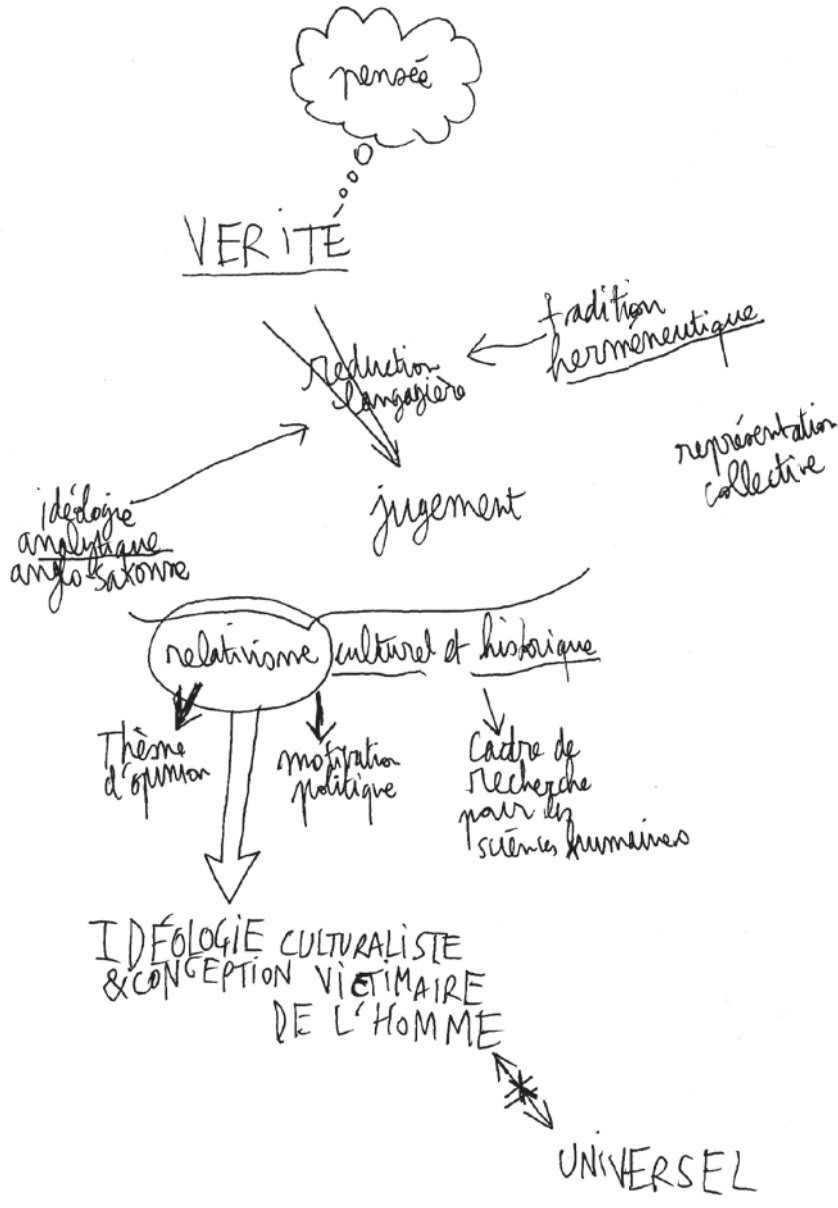 pensée
VERITÉ
tradition
herméneutique
reduction
langagière
représentation
collective
jugement
idéologie
analytique
anglo-saxonne
relativisme culturel et historique
Thème
d'opinion
motivation
politique
Cadre de
recherche
pour les
sciences humaines
IDÉOLOGIE CULTURALISTE
& CONCEPTION VICTIMAIRE
DE L'HOMME
UNIVERSEL